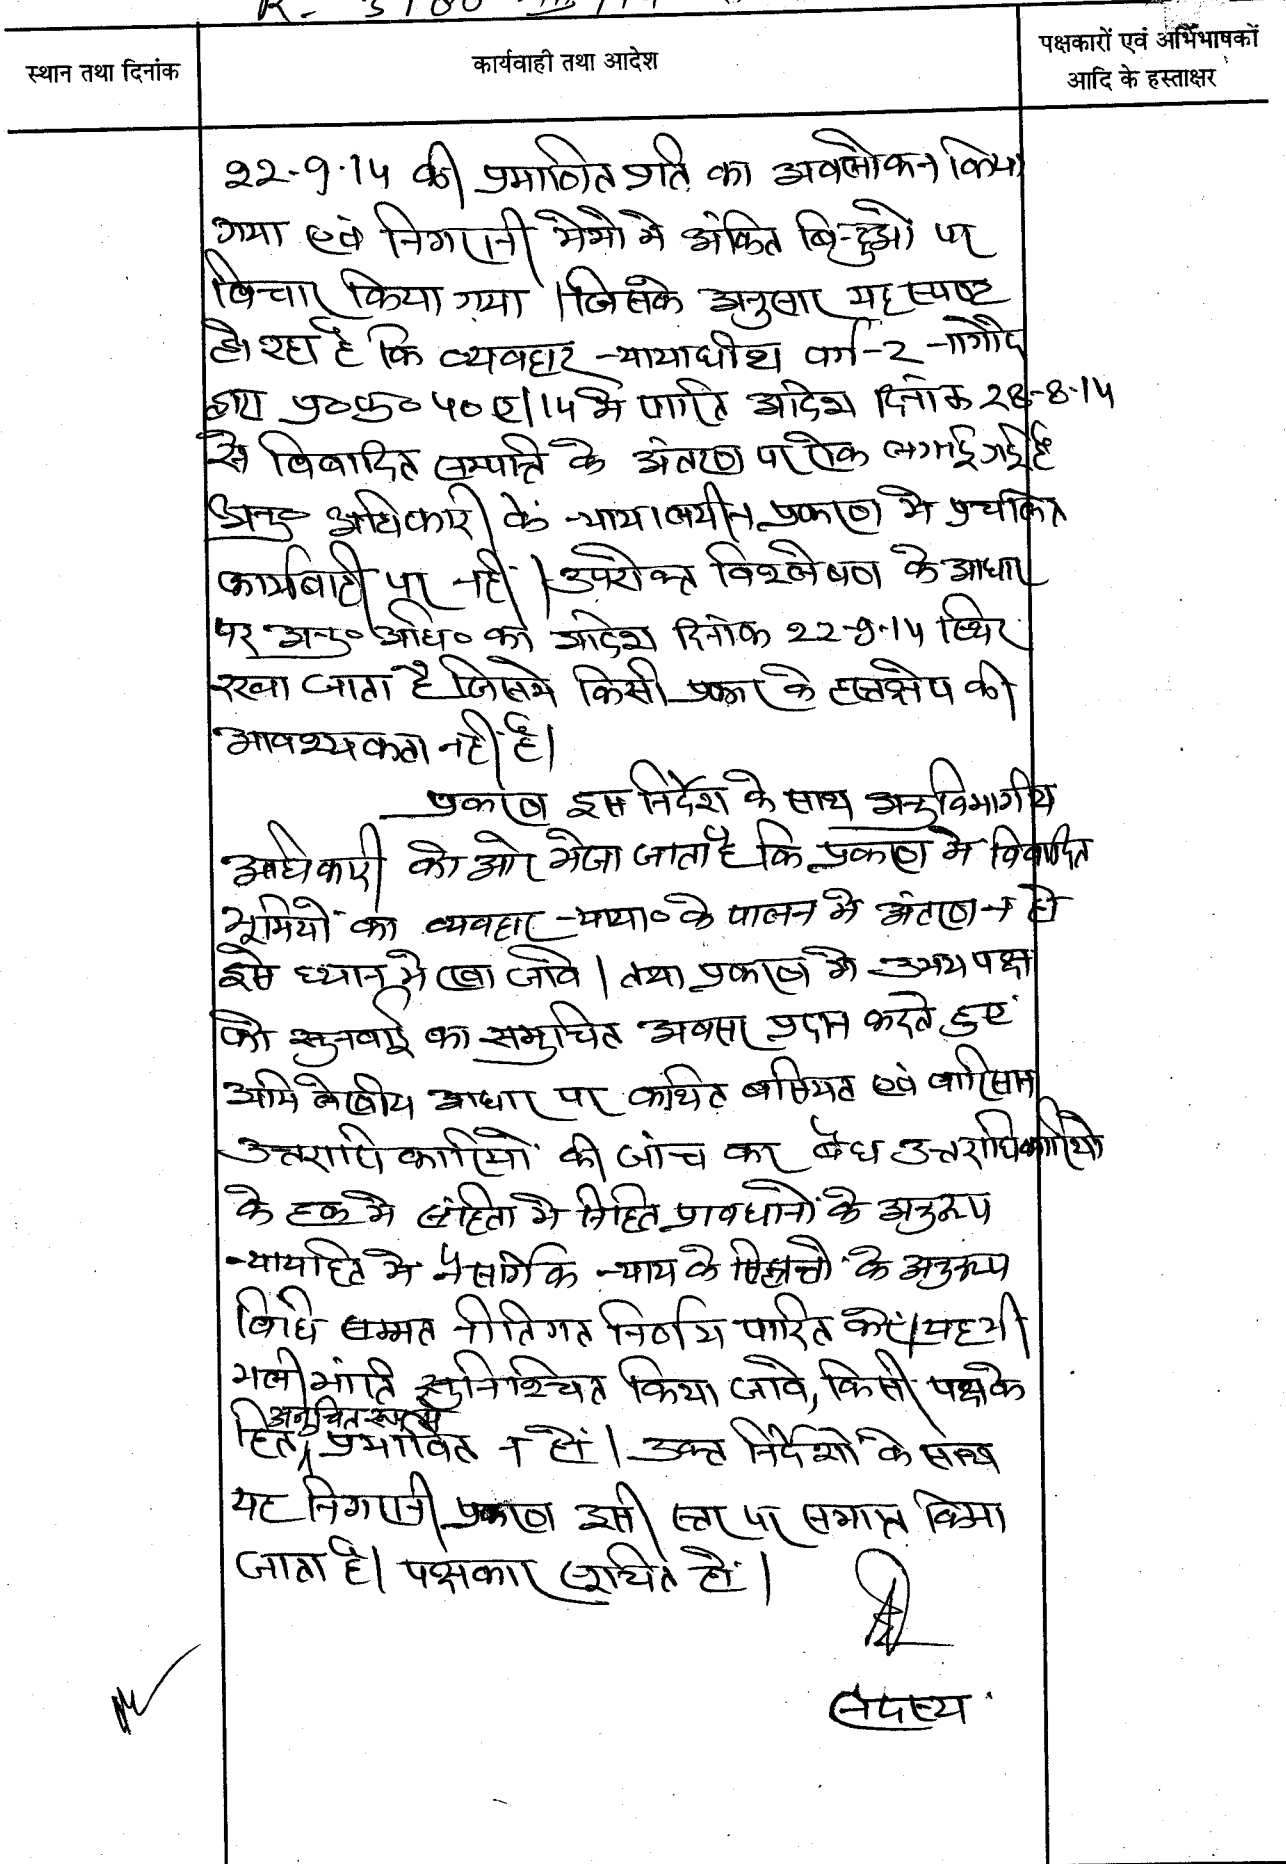 स्थान तथा दिनांक
कार्यवाही तथा आदेश
पक्षकारों एवं अभिभाषकों
आदि के हस्ताक्षर
22-9-14 की प्रमाणित प्रति का अवलोकन किया
गया एवं निगरानी मेमो मे अंकित बिन्दुओ पर
विचार किया गया । जिसके अनुसार यह स्पष्ट
हो रहा है कि व्यवहार न्यायाधीश वर्ग-2 नागौद
द्वारा प्र०क्र० 50 ए/14 मे पारित आदेश दिनांक 28-8-14
से विवादित सम्पत्ति के अंतरण पर रोक लगाई गई है
अनु० अधिकारी के न्यायालयीन प्रकरण मे प्रचलित
कार्यवाही पर नही । उपरोक्त विश्लेषण के आधार
पर अनु० अधि० का आदेश दिनांक 22-9-14 स्थिर
रखा जाता है जिसमे किसी प्रकार के हस्तक्षेप की
आवश्यकता नही है।
प्रकरण इस निर्देश के साथ अनुविभागीय
अधिकारी की ओर भेजा जाता है कि प्रकरण मे विवादित
भूमियों का व्यवहार न्याया० के पालन मे अंतरण न हो
इसे ध्यान मे रखा जावे । तथा प्रकरण मे उभय पक्ष
को सुनवाई का समुचित अवसर प्रदान करते हुए
अभिलेखीय आधार पर कथित बसियत एवं वारिसान
उत्तराधिकारियों की जांच कर बैध उत्तराधिकारियों
के हक मे संहिता मे निहित प्रावधानों के अनुरूप
न्यायहित मे नैसर्गिक न्याय के सिद्धांतो के अनुरूप
विधि सम्मत नीतिगत निर्णय पारित करें। यह भी
भली भांति सुनिश्चित किया जावे, किसी पक्ष के
हित अनुचित रूप से प्रभावित न हों । उक्त निर्देशों के साथ
यह निगरानी प्रकरण इसी स्तर पर समाप्त किया
जाता है। पक्षकार सूचित हों ।
सदस्य